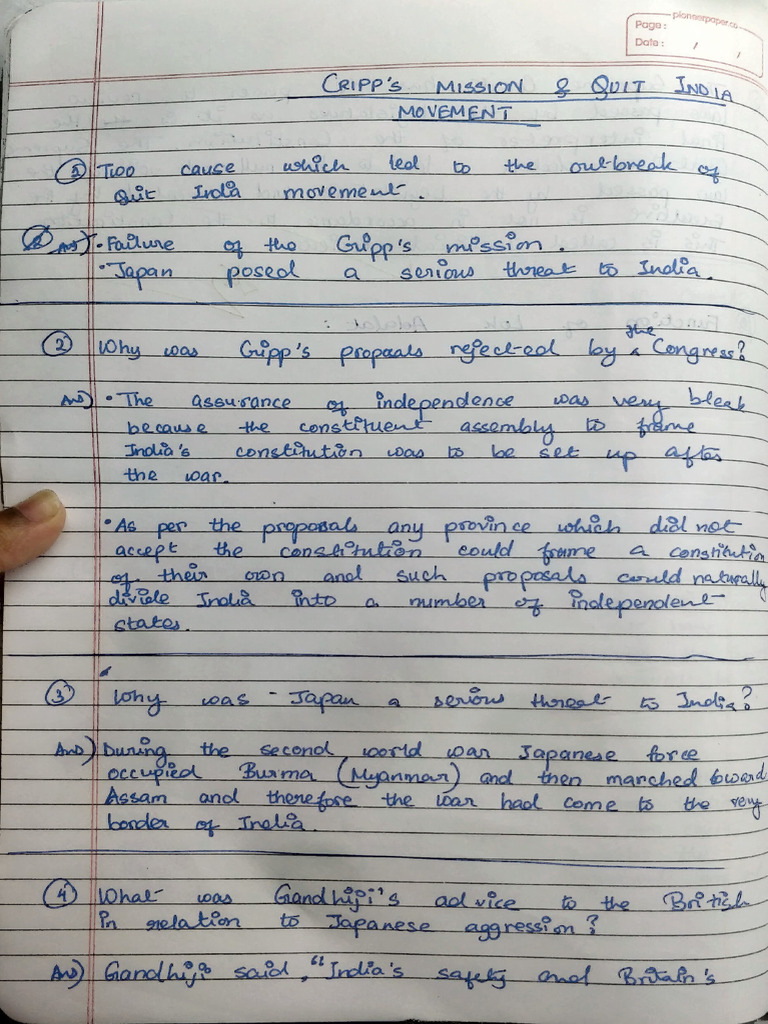 pioneerpaper.co
Page:
Date: / /
CRIPP'S MISSION & QUIT INDIA
MOVEMENT
① Two cause which led to the outbreak of
Quit India movement.
Ans) • Failure of the Cripp's mission.
• Japan posed a serious threat to India.
② Why was Cripp's propoals rejected by the Congress?
Ans) • The assurance of independence was very bleak
because the constituent assembly to frame
India's constitution was to be set up after
the war.
• As per the proposals any province which did not
accept the constitution could frame a constitution
of their own and such proposals could naturally
divide India into a number of independent
states.
③ Why was Japan a serious threat to India?
Ans) During the second world war Japanese force
occupied Burma (Myanmar) and then marched toward
Assam and therefore the war had come to the very
border of India.
④ What was Gandhiji's advice to the British
in relation to Japanese aggression?
Ans) Gandhiji said, "India's safety and Britain's